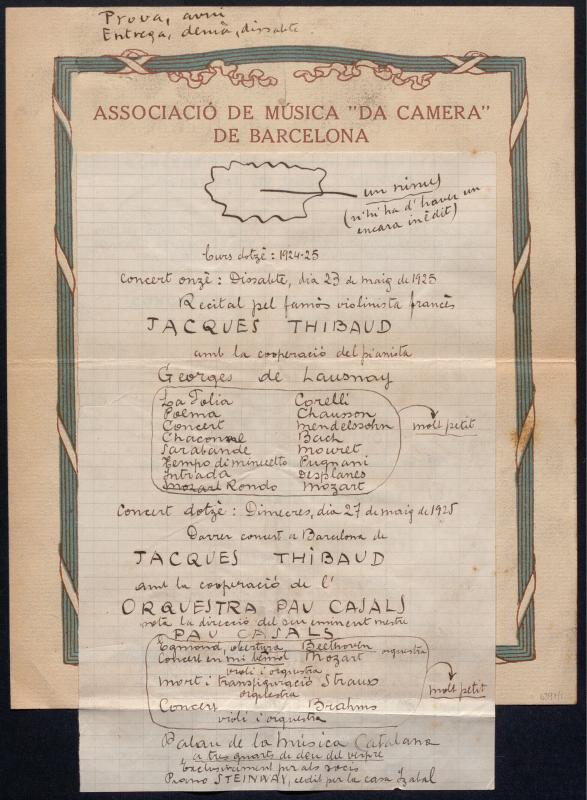 Prova, avui
Entrega, demà, dissabte.
ASSOCIACIÓ DE MÚSICA "DA CAMERA"
DE BARCELONA
un ninu
(n'hi ha d'haver un
encara inèdit)
Curs dotzè: 1924-25
Concert onzè: Dissabte, dia 23 de maig de 1925
Recital pel famós violinista francès
JACQUES THIBAUD
amb la cooperació del pianista
Georges de Lausnay
La Folia Corelli
Poema Chausson
Concert Mendelssohn
Chaconne Bach
Sarabande Mouret
Tempo di minuetto Pugnani
Intrada Desplanes
Mozart Rondo Mozart
molt petit
Concert dotzè: Dimecres, dia 27 de maig de 1925
Darrer concert a Barcelona de
JACQUES THIBAUD
amb la cooperació de l'
ORQUESTRA PAU CASALS
sota la direcció del seu eminent mestre
PAU CASALS
Egmond, obertura Beethoven
orquestra
Concert en mi bemol Mozart
violí i orquestra
Mort i transfiguració Strauss
orquestra
Concert Brahms
violí i orquestra
molt petit
Palau de la Música Catalana
a tres quarts de deu del vespre
Exclusivament per als socis
Piano STEINWAY, cedit per la casa Izabal